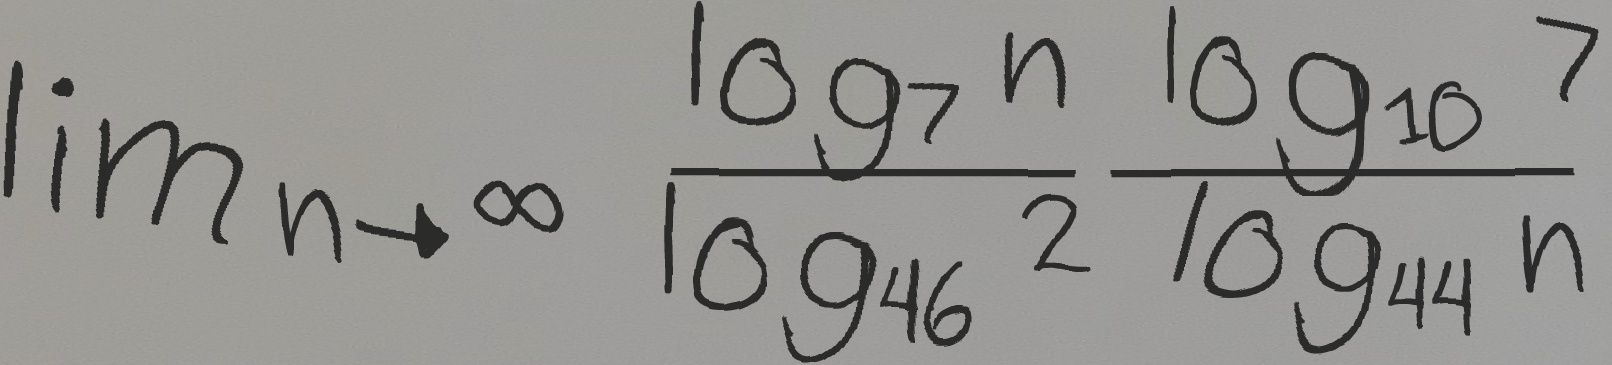 lim n→∞ \frac{\log_7 n}{\log_{46} 2} \frac{\log_{10} 7}{\log_{44} n}